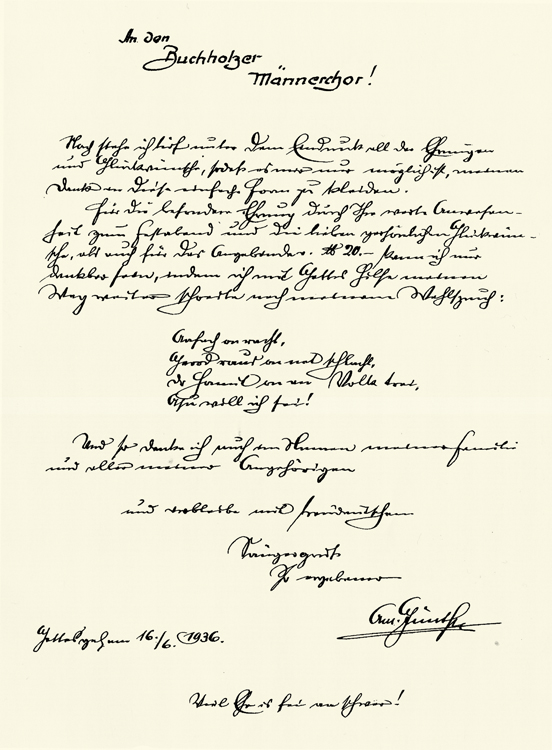 An den
Buchholzer
Männerchor!
Noch stehe ich tief unter dem Eindruck all der Ehrungen
und Glückwünsche, sodaß es mir nur möglich ist, meinen
Dank in diese einfache Form zu kleiden.
Für die besondere Ehrung durch Ihre werte Anwesen-
heit zum Festabend und die lieben persönlichen Glückwün-
sche, als auch für das Angebinde. M 20.- kann ich nur
dankbar sein, indem ich mit Gottes Hilfe meinen
Weg weiter schreite nach meinem Wahlspruch:
Aafach on racht,
Gerod raus on net schlacht,
dr Hamit on en Volk trei,
Asu will ich sei!
Und so danke ich auch im Namen meiner Familie
und aller meiner Angehörigen
und verbleibe mit
Sängergruß
Ihr ergebener
Ant. Günther
Gottesgab am 16./6. 1936.
Viel Ehr is fei aa schwer!